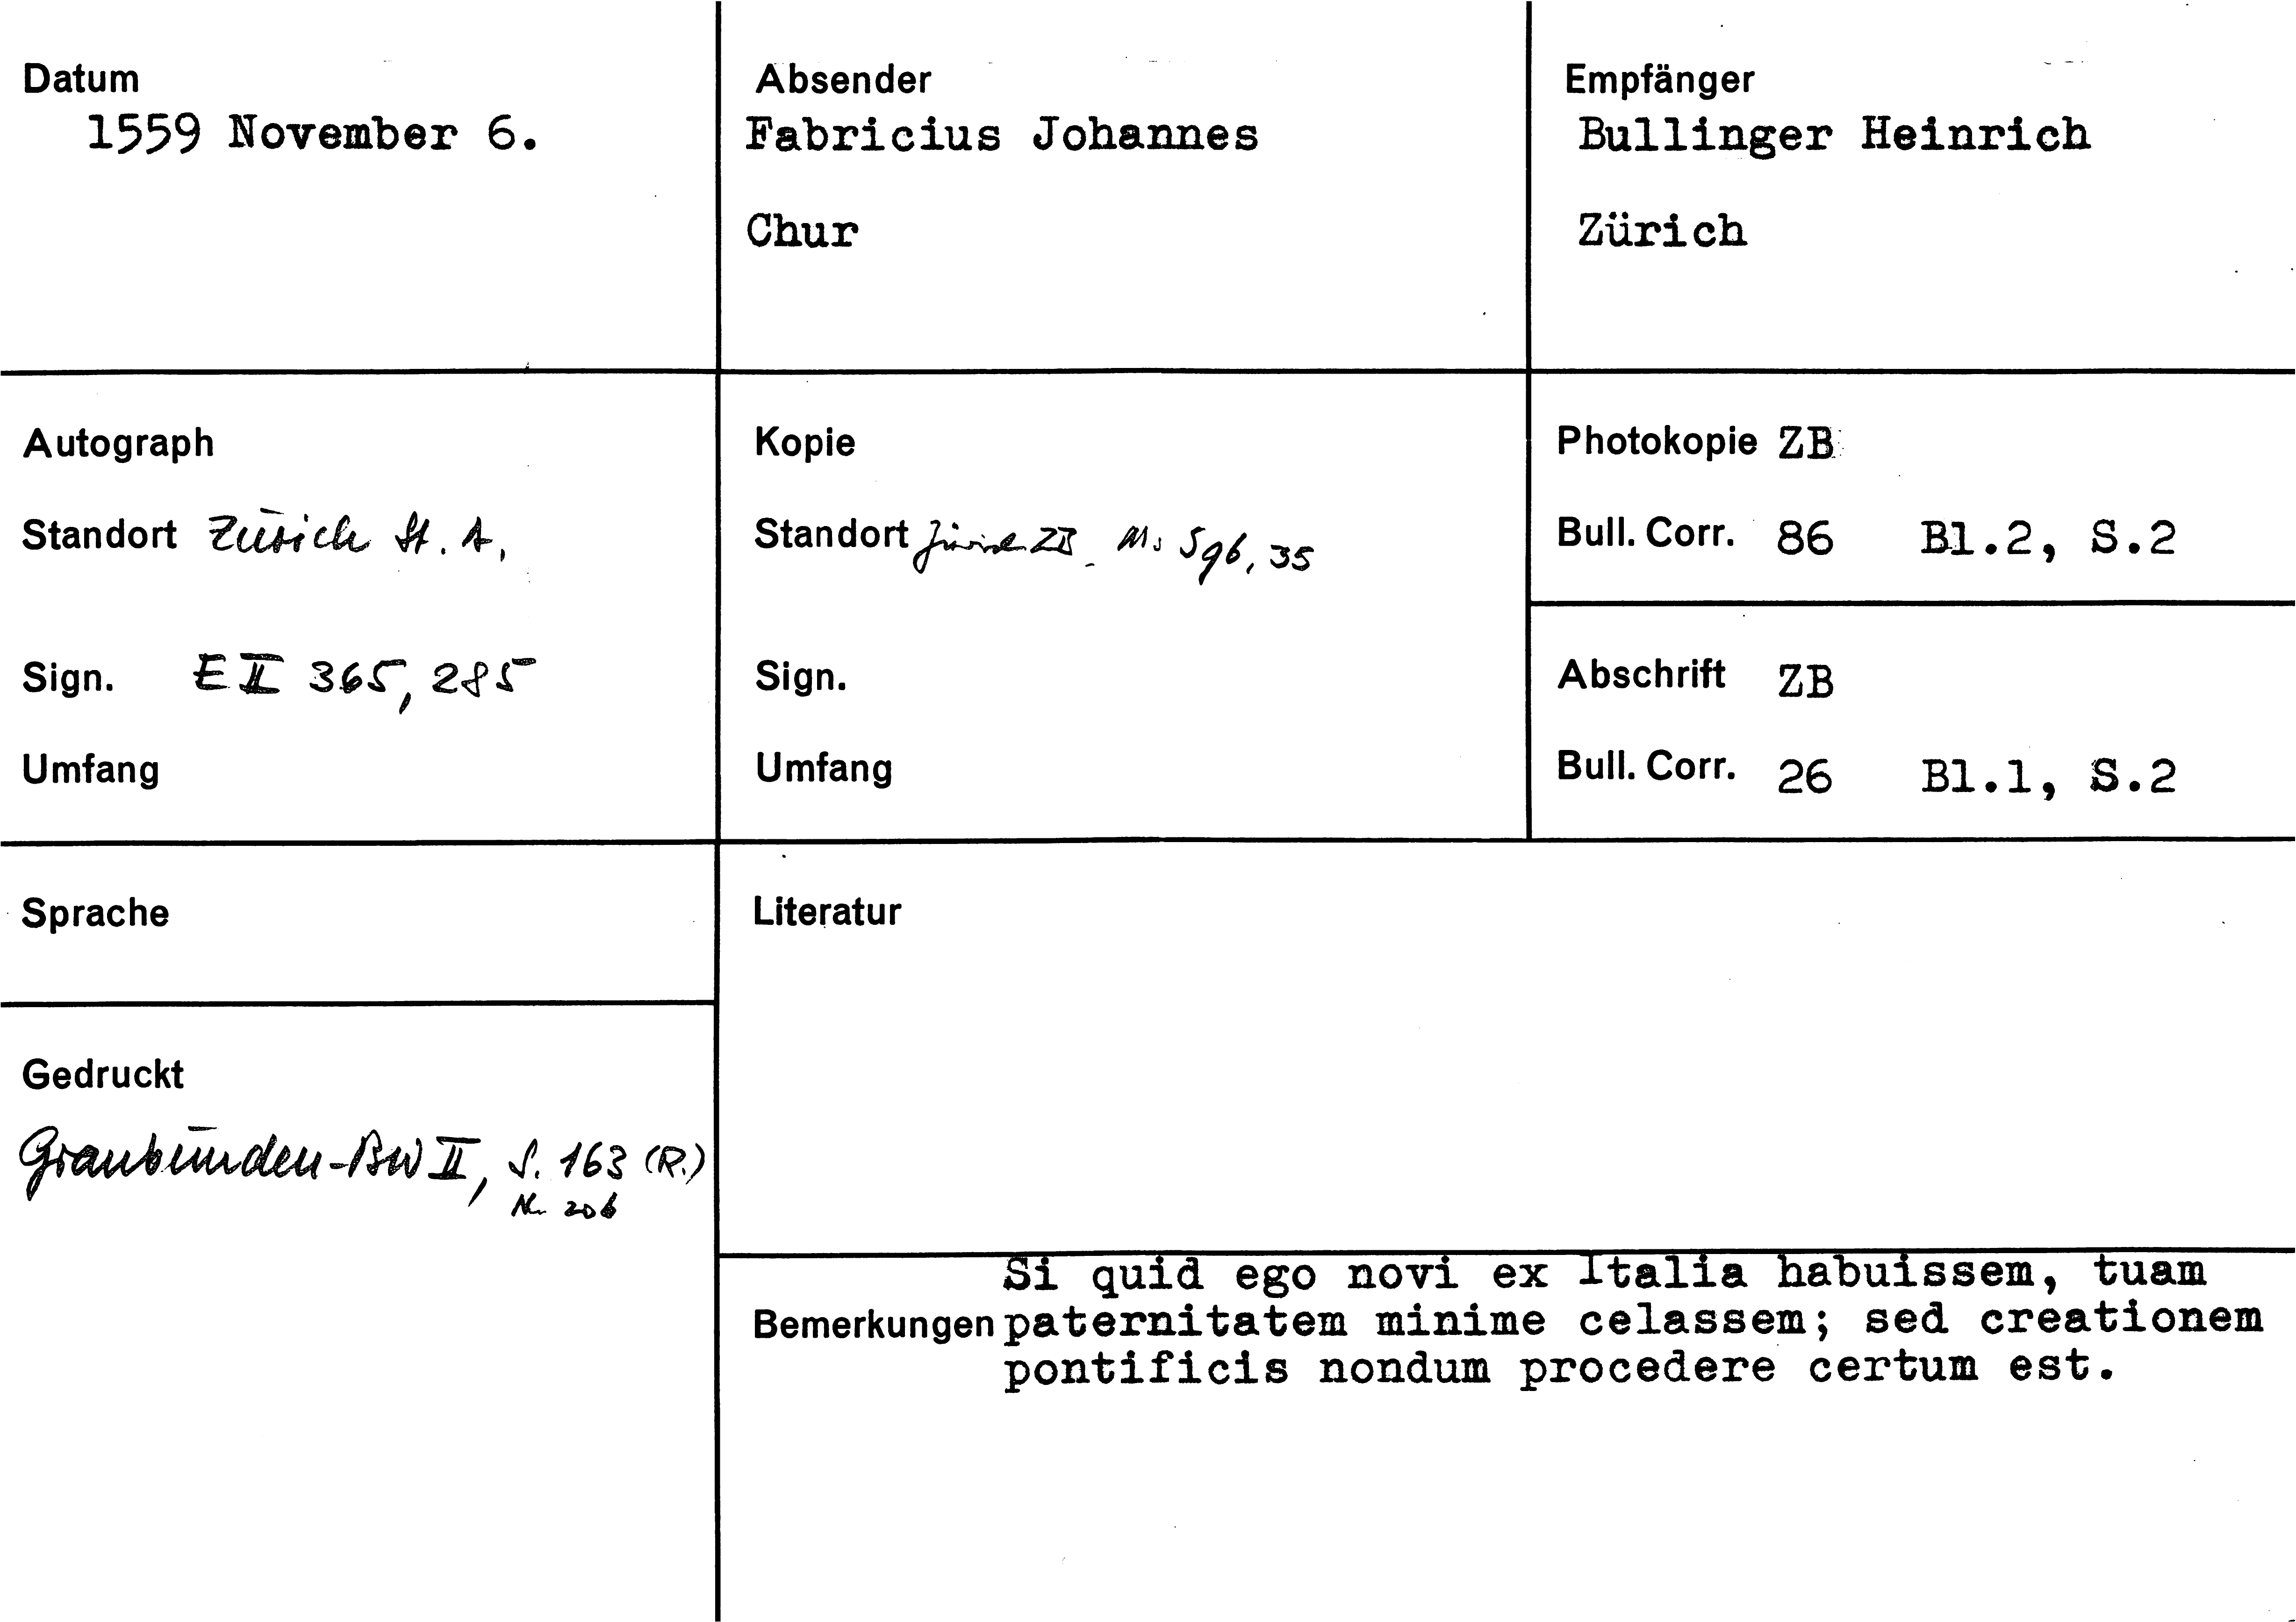 Datum
1559 November 6.
Absender
Fabricius Johannes
Chur
Empfänger
Bullinger Heinrich
Zürich
Autograph
Standort Zürich St. A.
Sign. E II 365, 285
Umfang
Kopie
Standort Zürich ZB Ms S 96, 35
Sign.
Umfang
Photokopie ZB
Bull. Corr. 86 Bl.2, S.2
Abschrift ZB
Bull. Corr. 26 Bl.1, S.2
Sprache
Literatur
Gedruckt
Graubünden-BW II, S. 163 (R.)
Nr. 206
Si quid ego novi ex Italia habuissem, tuam
Bemerkungen paternitatem minime celassem; sed creationem
pontificis nondum procedere certum est.